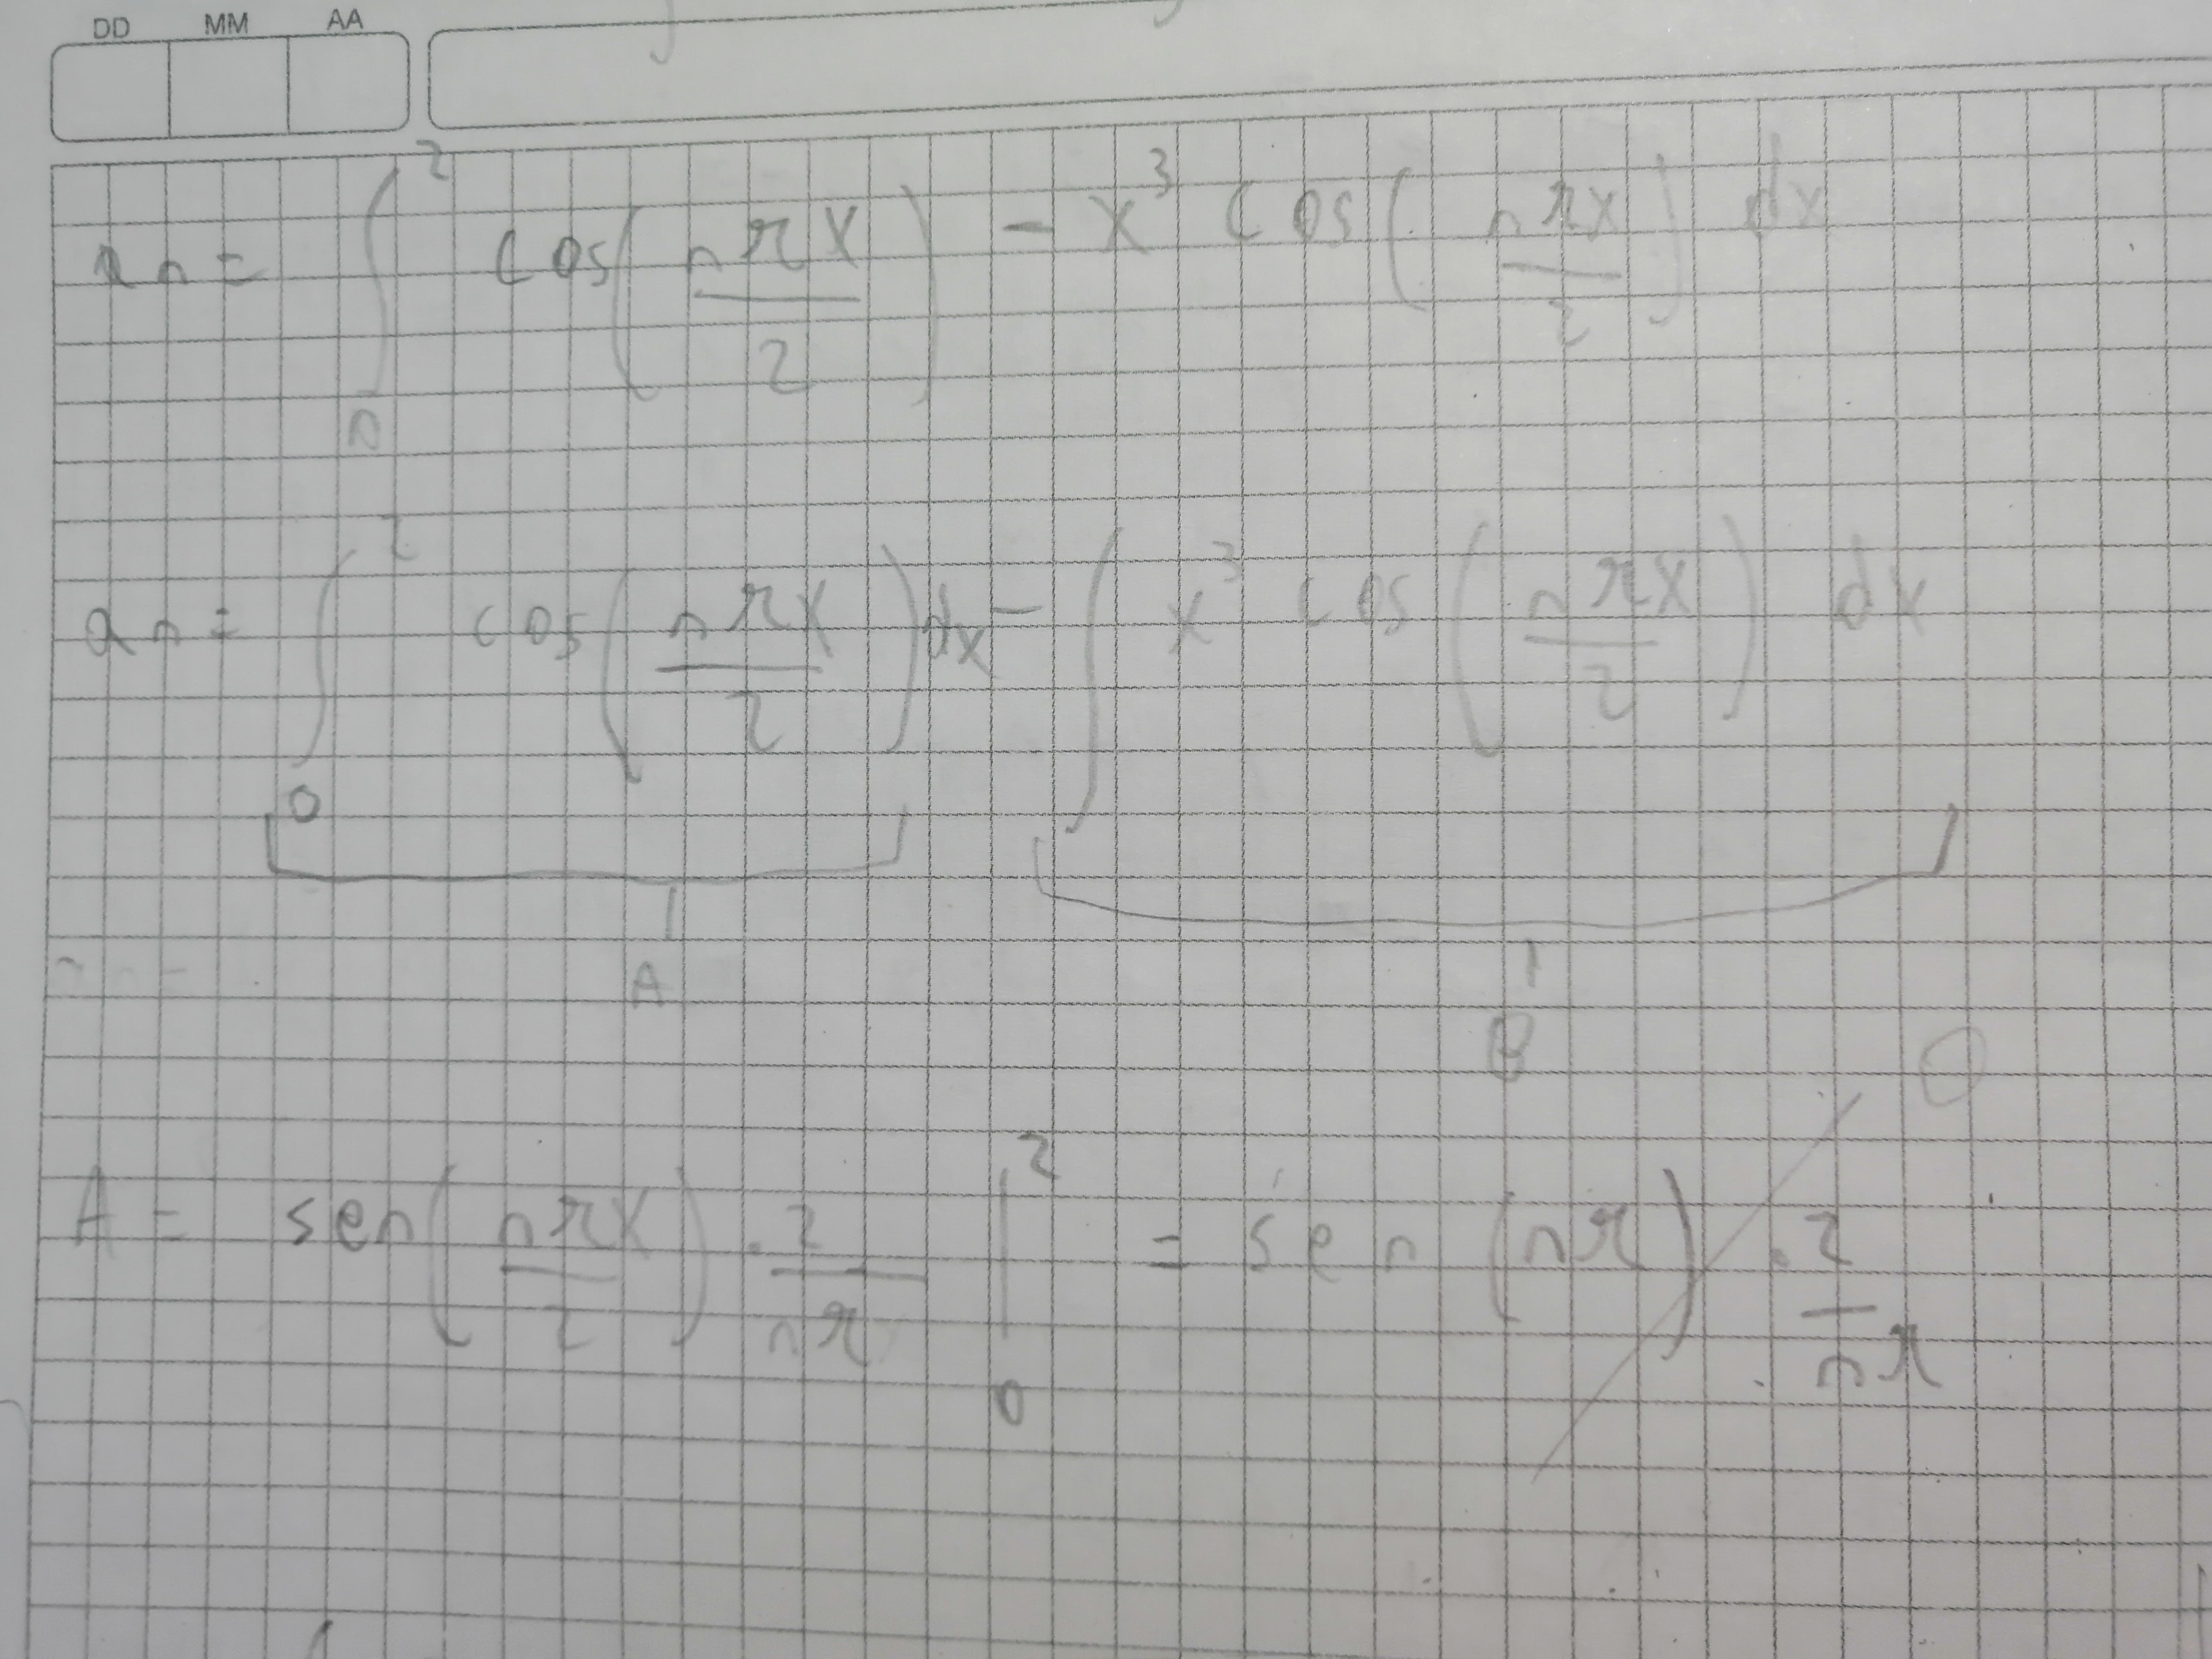 DD MM AA
an = ∫₀² cos(nπx/2) - x³ cos(nπx/2) dx
an = ∫₀² cos(nπx/2)dx - ∫ x³ cos(nπx/2) dx
A B
0
A = sen(nπx/2) · 2/nπ |₀² = sen(nπ) · 2/nπ